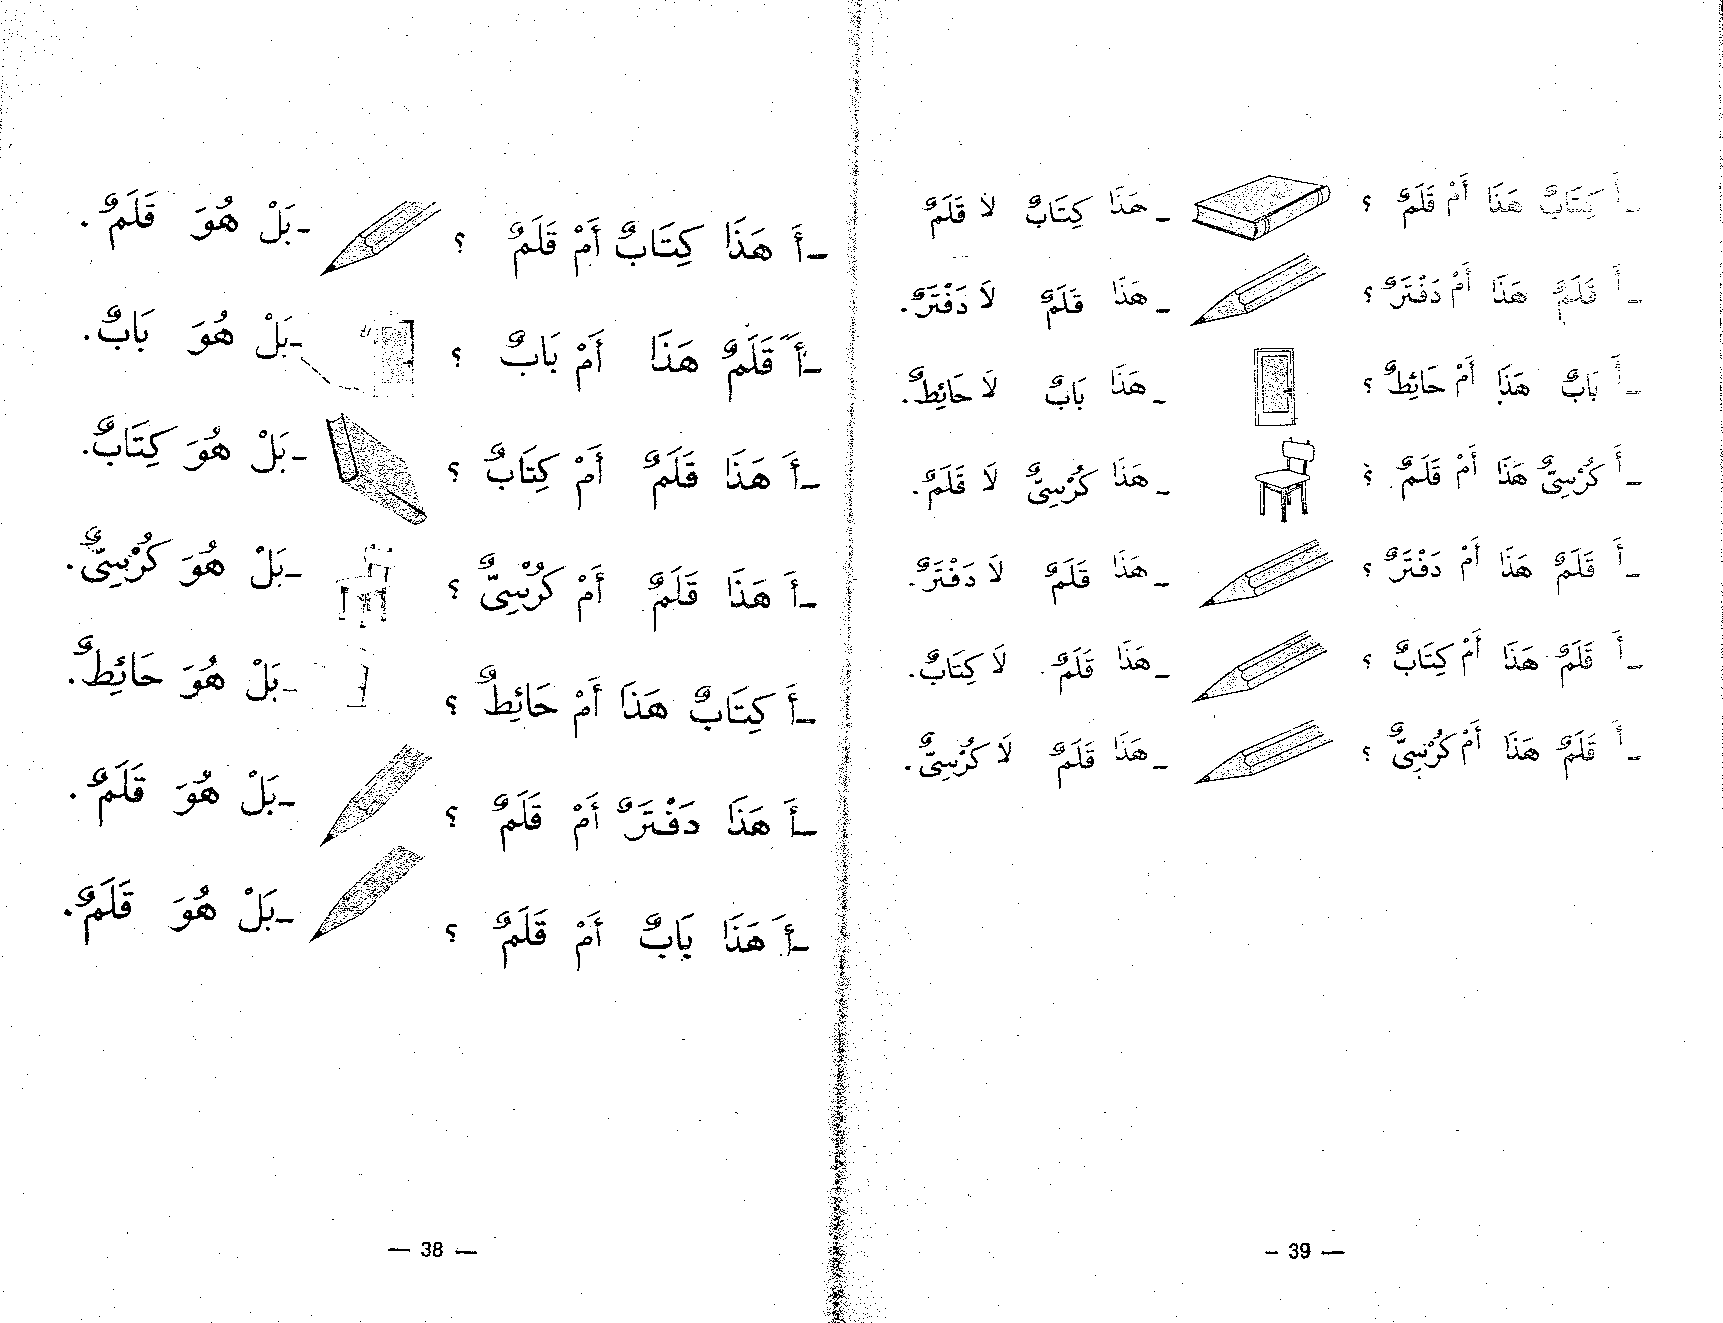 ـ أَ هَذَا كِتَابٌ أَمْ قَلَمٌ ؟ ـ بَلْ هُوَ قَلَمٌ .
ـ أَ قَلَمٌ هَذَا أَمْ بَابٌ ؟ ـ بَلْ هُوَ بَابٌ .
ـ أَ هَذَا قَلَمٌ أَمْ كِتَابٌ ؟ ـ بَلْ هُوَ كِتَابٌ .
ـ أَ هَذَا قَلَمٌ أَمْ كُرْسِىٌّ ؟ ـ بَلْ هُوَ كُرْسِىٌّ .
ـ أَ كِتَابٌ هَذَا أَمْ حَائِطٌ ؟ ـ بَلْ هُوَ حَائِطٌ .
ـ أَ هَذَا دَفْتَرٌ أَمْ قَلَمٌ ؟ ـ بَلْ هُوَ قَلَمٌ .
ـ أَ هَذَا بَابٌ أَمْ قَلَمٌ ؟ ـ بَلْ هُوَ قَلَمٌ .
— 38 —
ـ أَ كِتَابٌ هَذَا أَمْ قَلَمٌ ؟ ـ هَذَا كِتَابٌ لاَ قَلَمٌ
ـ أَ قَلَمٌ هَذَا أَمْ دَفْتَرٌ ؟ ـ هَذَا قَلَمٌ لاَ دَفْتَرٌ .
ـ أَ بَابٌ هَذَا أَمْ حَائِطٌ ؟ ـ هَذَا بَابٌ لاَ حَائِطٌ .
ـ أَ كُرْسِىٌّ هَذَا أَمْ قَلَمٌ ؟ ـ هَذَا كُرْسِىٌّ لاَ قَلَمٌ .
ـ أَ قَلَمٌ هَذَا أَمْ دَفْتَرٌ ؟ ـ هَذَا قَلَمٌ لاَ دَفْتَرٌ .
ـ أَ قَلَمٌ هَذَا أَمْ كِتَابٌ ؟ ـ هَذَا قَلَمٌ لاَ كِتَابٌ .
ـ أَ قَلَمٌ هَذَا أَمْ كُرْسِىٌّ ؟ ـ هَذَا قَلَمٌ لاَ كُرْسِىٌّ .
— 39 —